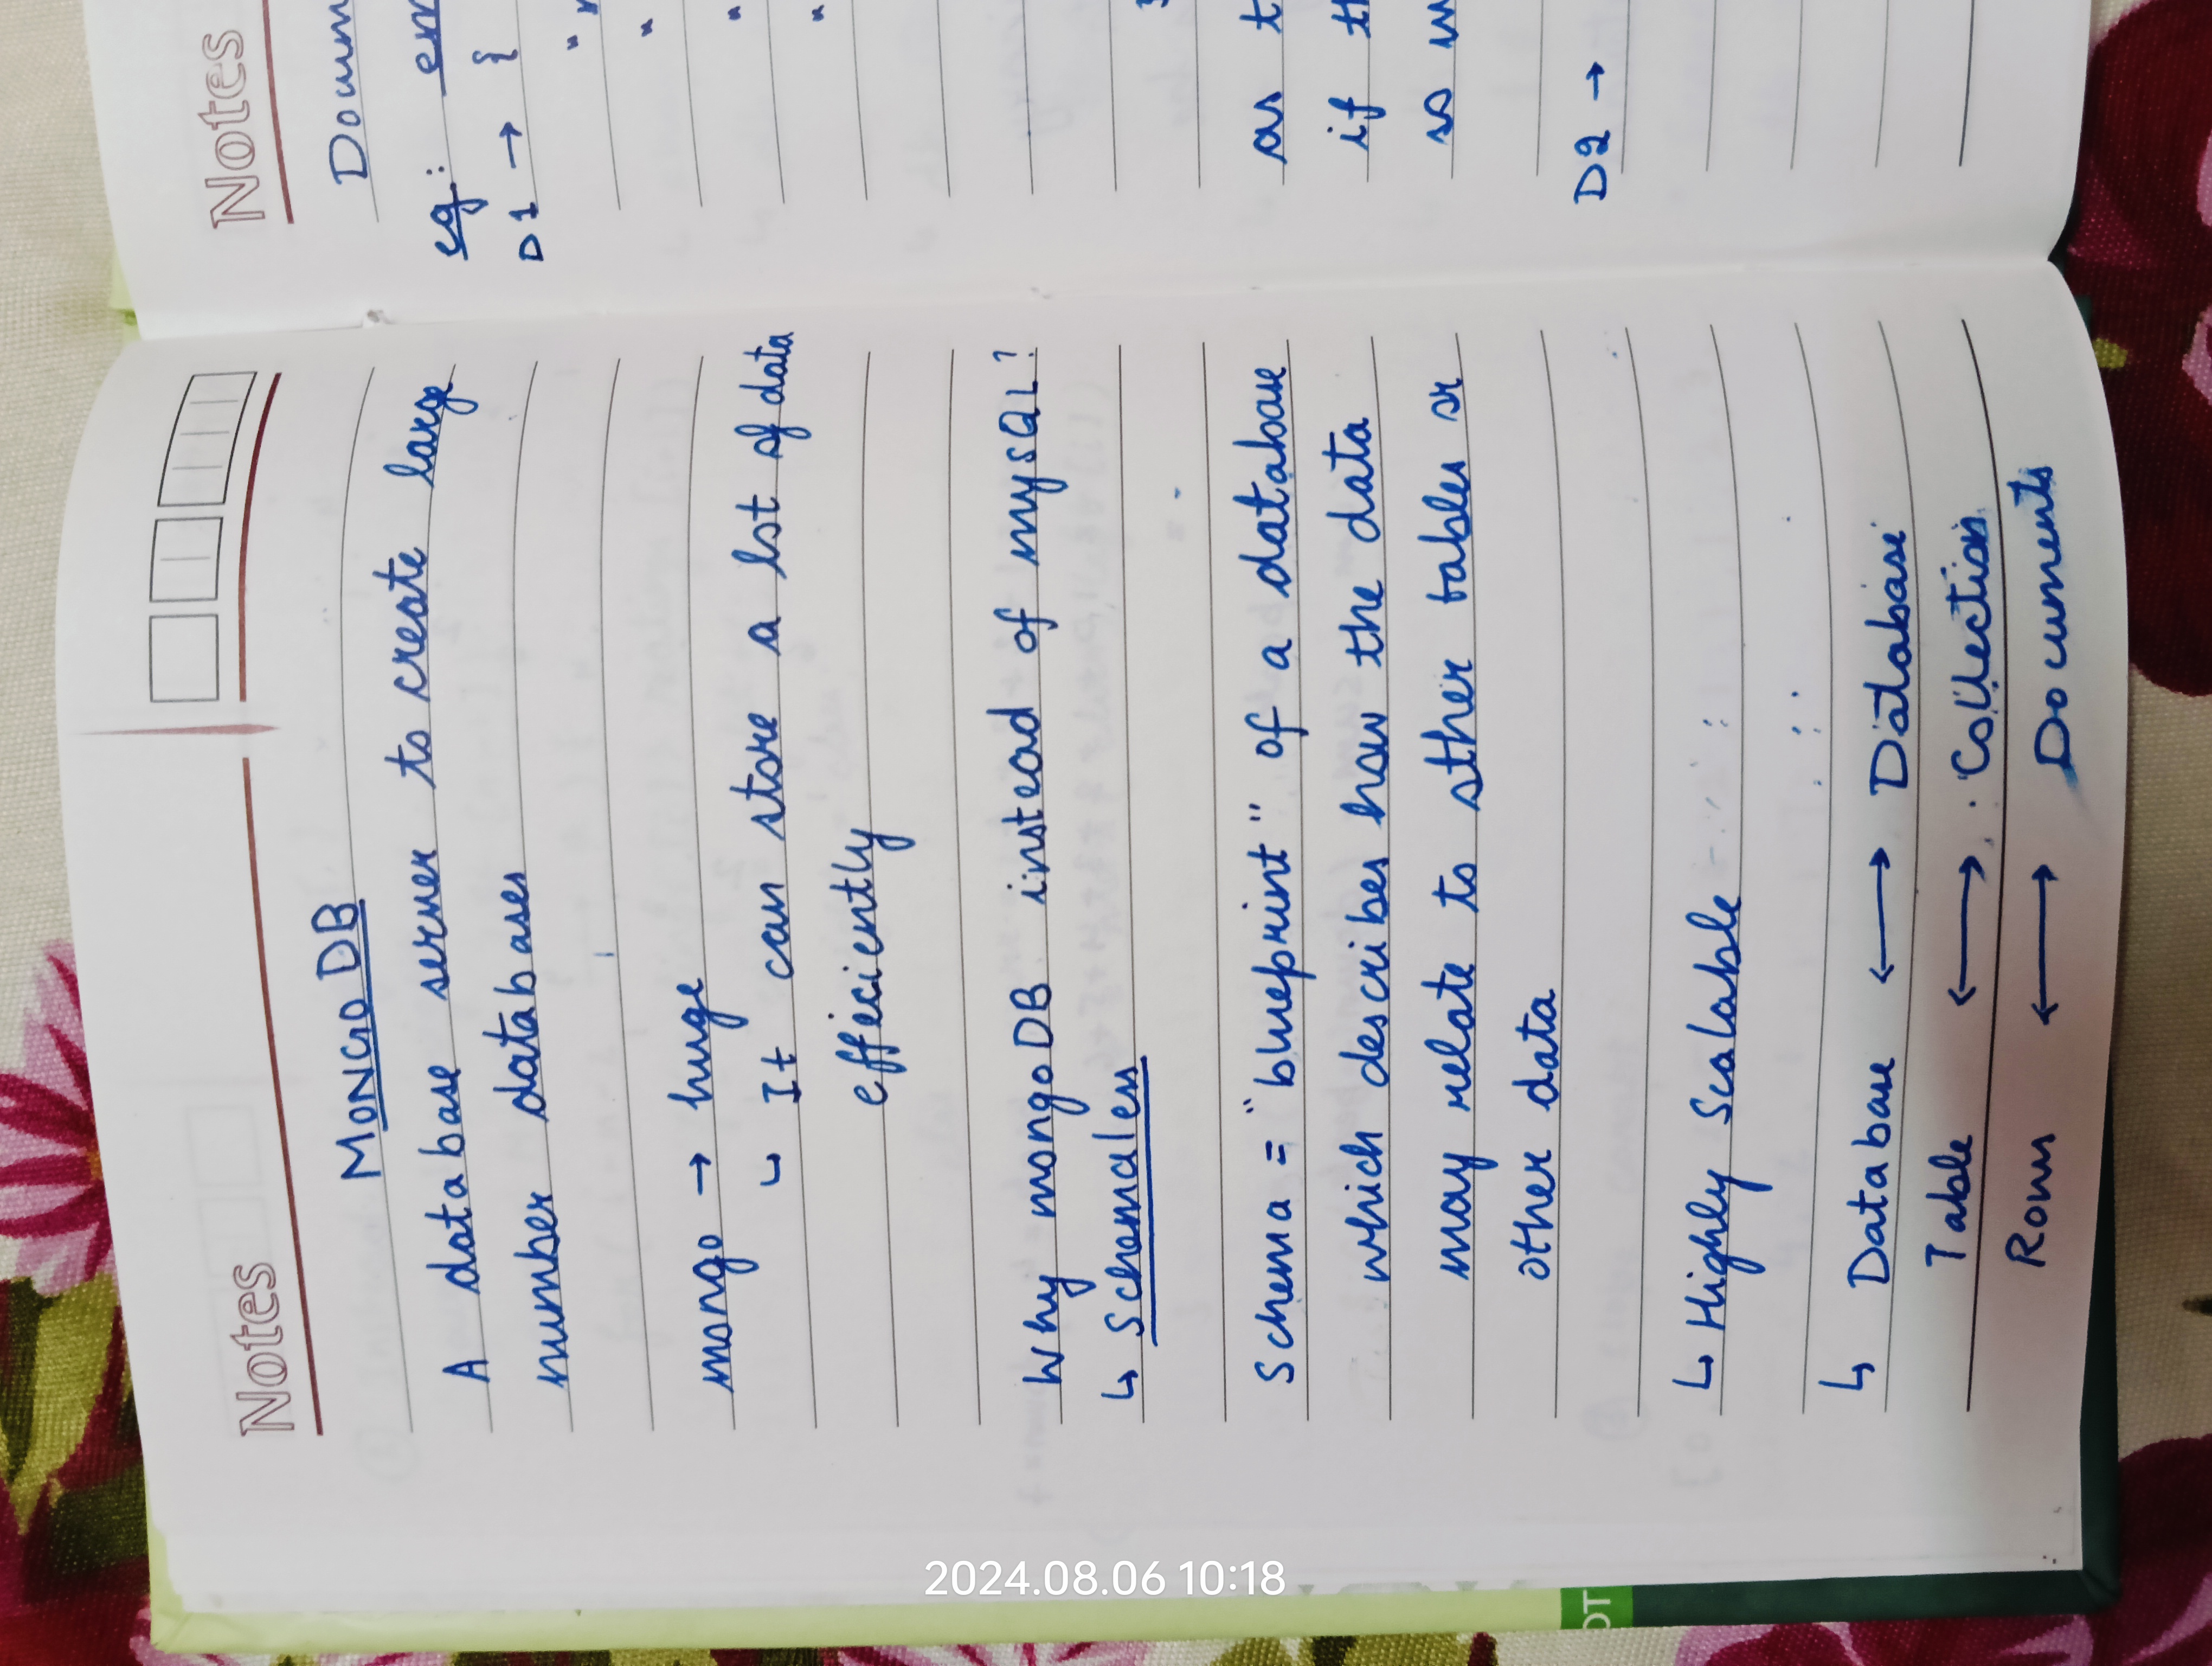 Notes
MONGO DB
A database server to create large
number databases
mongo → huge
↳ It can store a lot of data
efficiently
Why mongo DB instead of mySQL?
↳ Schemaless
Schema = "blueprint" of a database
which describes how the data
may relate to other tables or
other data
↳ Highly Scalable
↳ Database ⟷ Database
Table ⟷ Collection
Rows ⟷ Documents
Notes
eg:
D1 → {
"
"
"
"
if
D2 →
2024.08.06 10:18